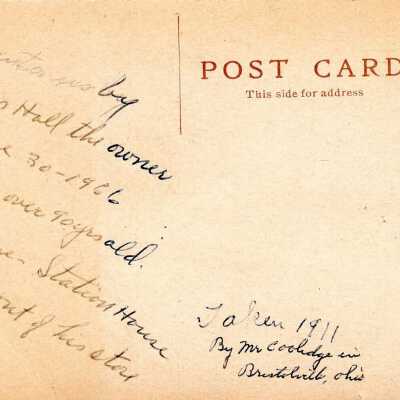 by
Hall the owner
30-1966
over 90 yrs old.
Station House
out of his store
POST CARD
This side for address
Taken 1911
By Mr Coolidge in
Bristolville, Ohio